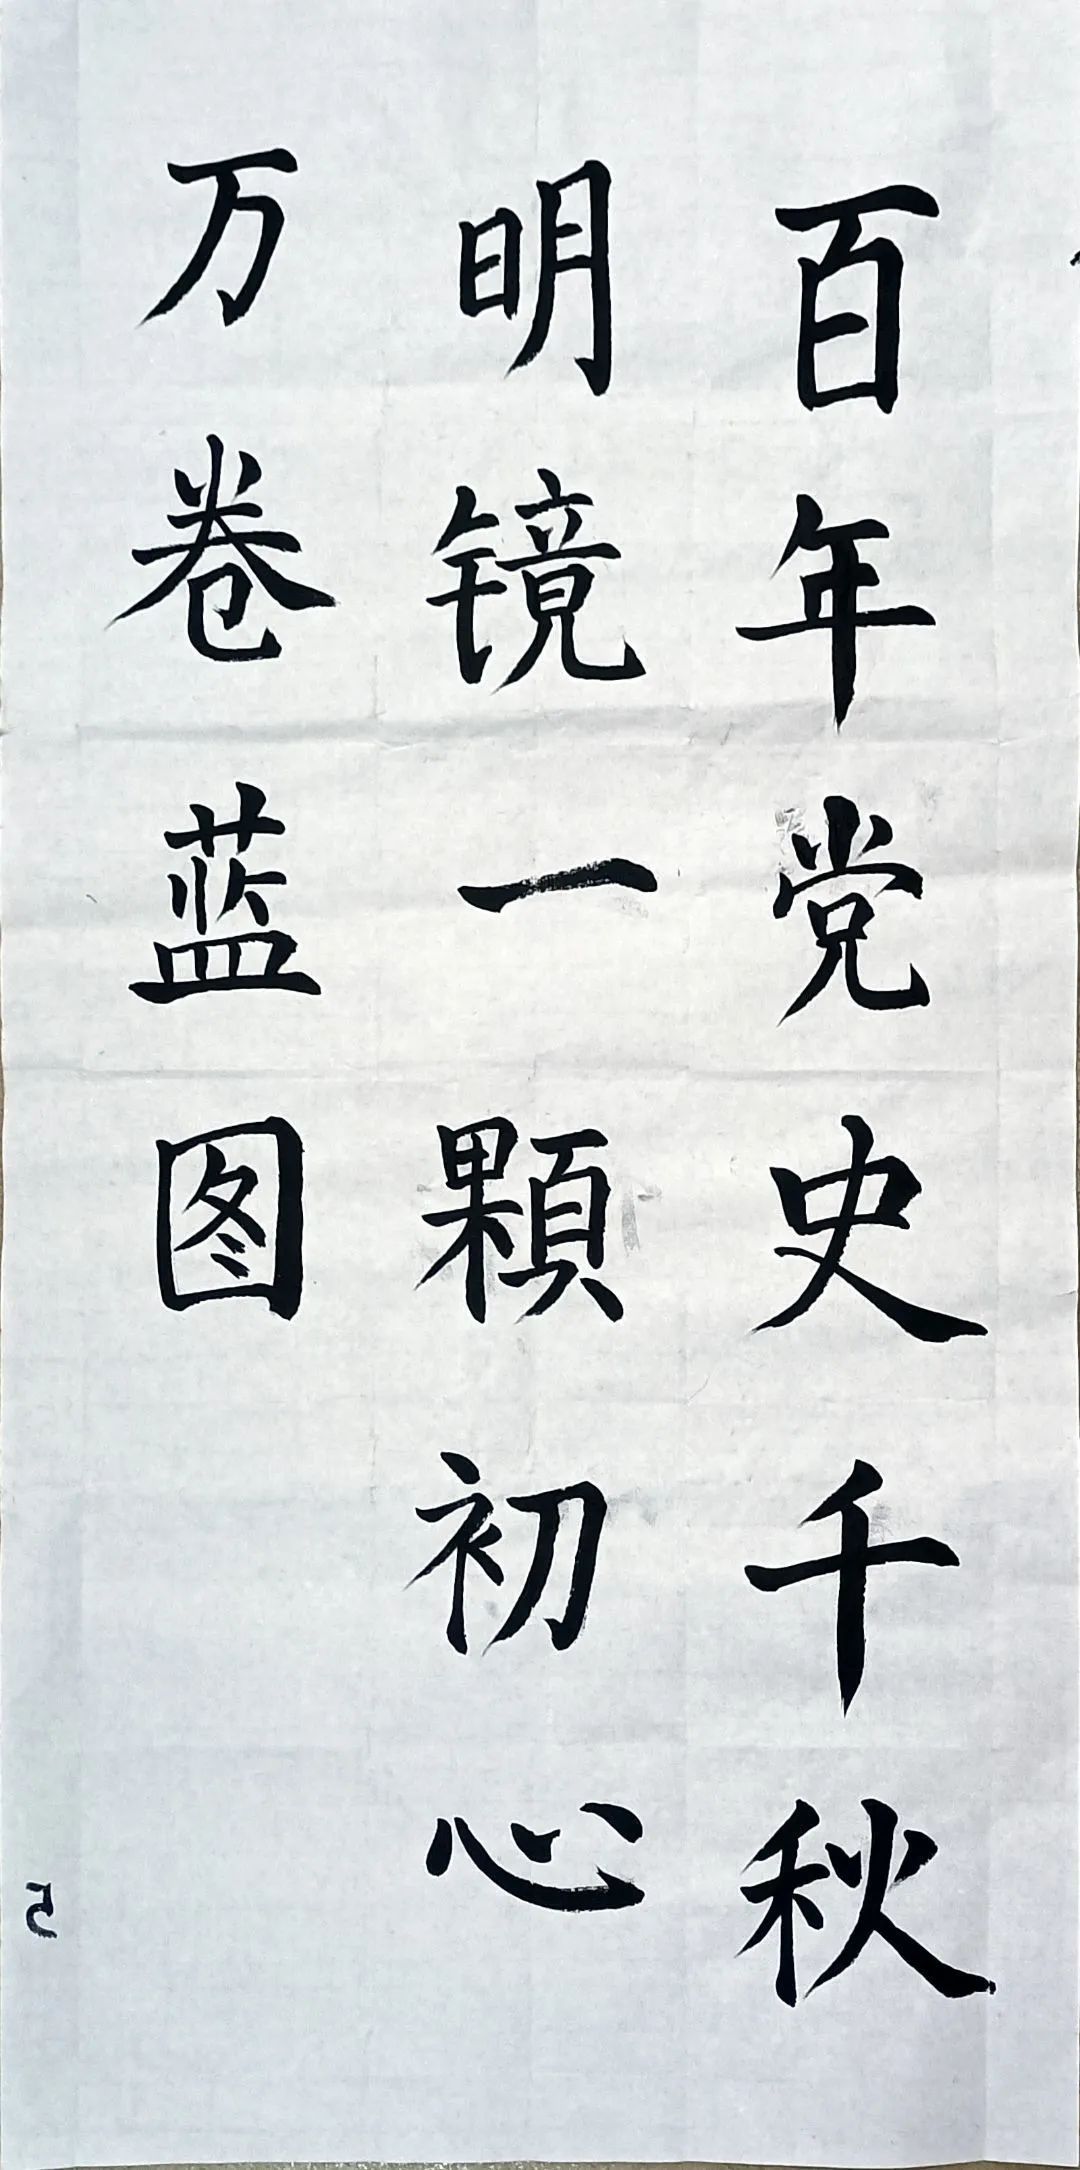 百年党史千秋
明镜一顆初心
万卷蓝图
5